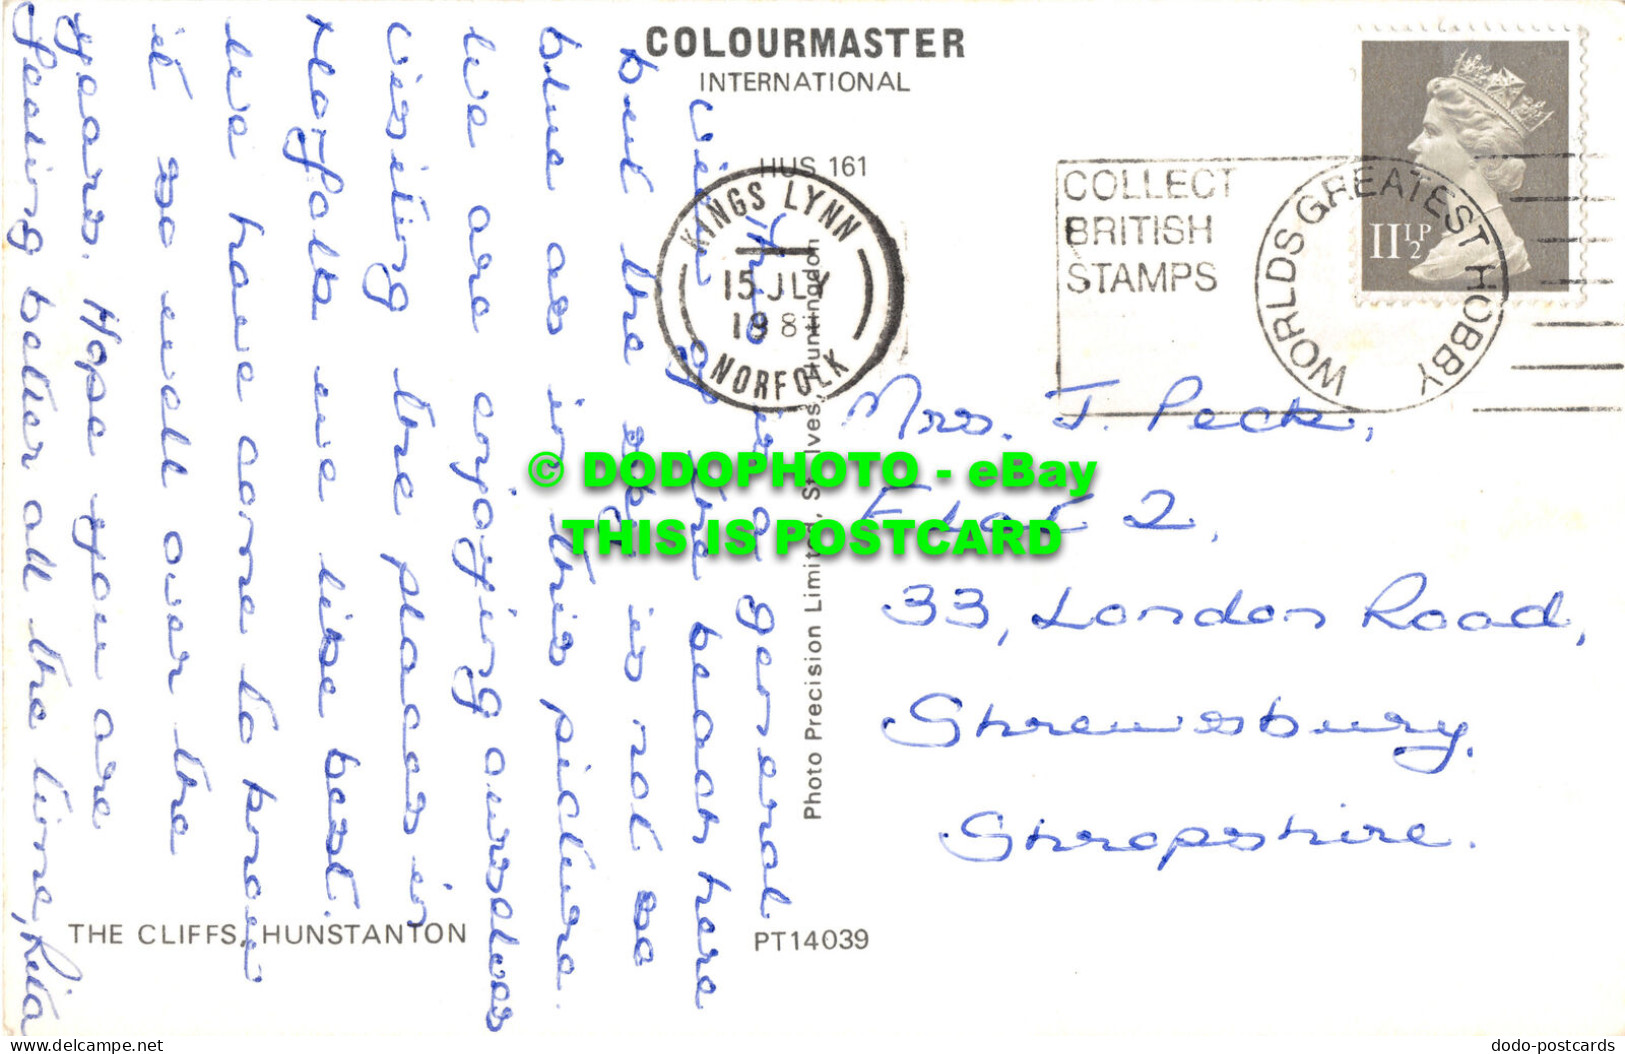 COLOURMASTER
INTERNATIONAL
HUS 161
KINGS LYNN
15 JLY
198
NORFOLK
COLLECT
BRITISH
STAMPS
WORLDS GREATEST HOBBY
11½P
This is a general
view of the beach here
but the sky is not so
blue as in this picture.
We are enjoying ourselves
visiting the places in
Norfolk we like best.
We have come to know
it so well over the
years. Hope you are
feeling better all the time, Rita
Mrs. J. Peck,
Flat 2,
33, London Road,
Shrewsbury,
Shropshire.
Photo Precision Limited, St. Ives, Huntingdon
THE CLIFFS, HUNSTANTON
PT14039
© DODOPHOTO - eBay
THIS IS POSTCARD
Website: www.delcampe.net
dodo-postcards